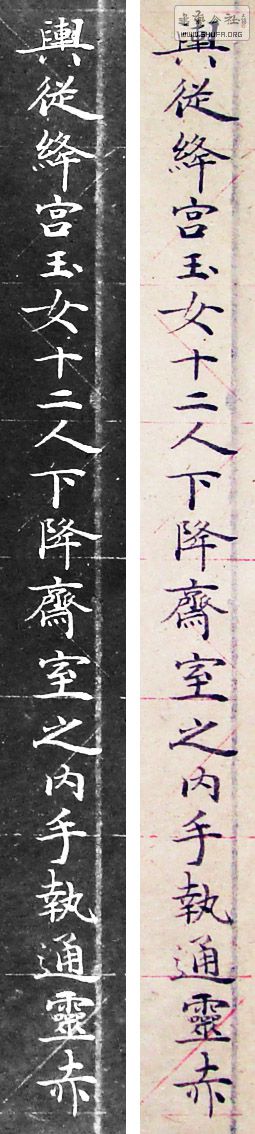 輿從絳宮玉女十二人下降齋室之內手執通靈赤
輿從絳宮玉女十二人下降齋室之內手執通靈赤
WWW.SHUFA.ORG